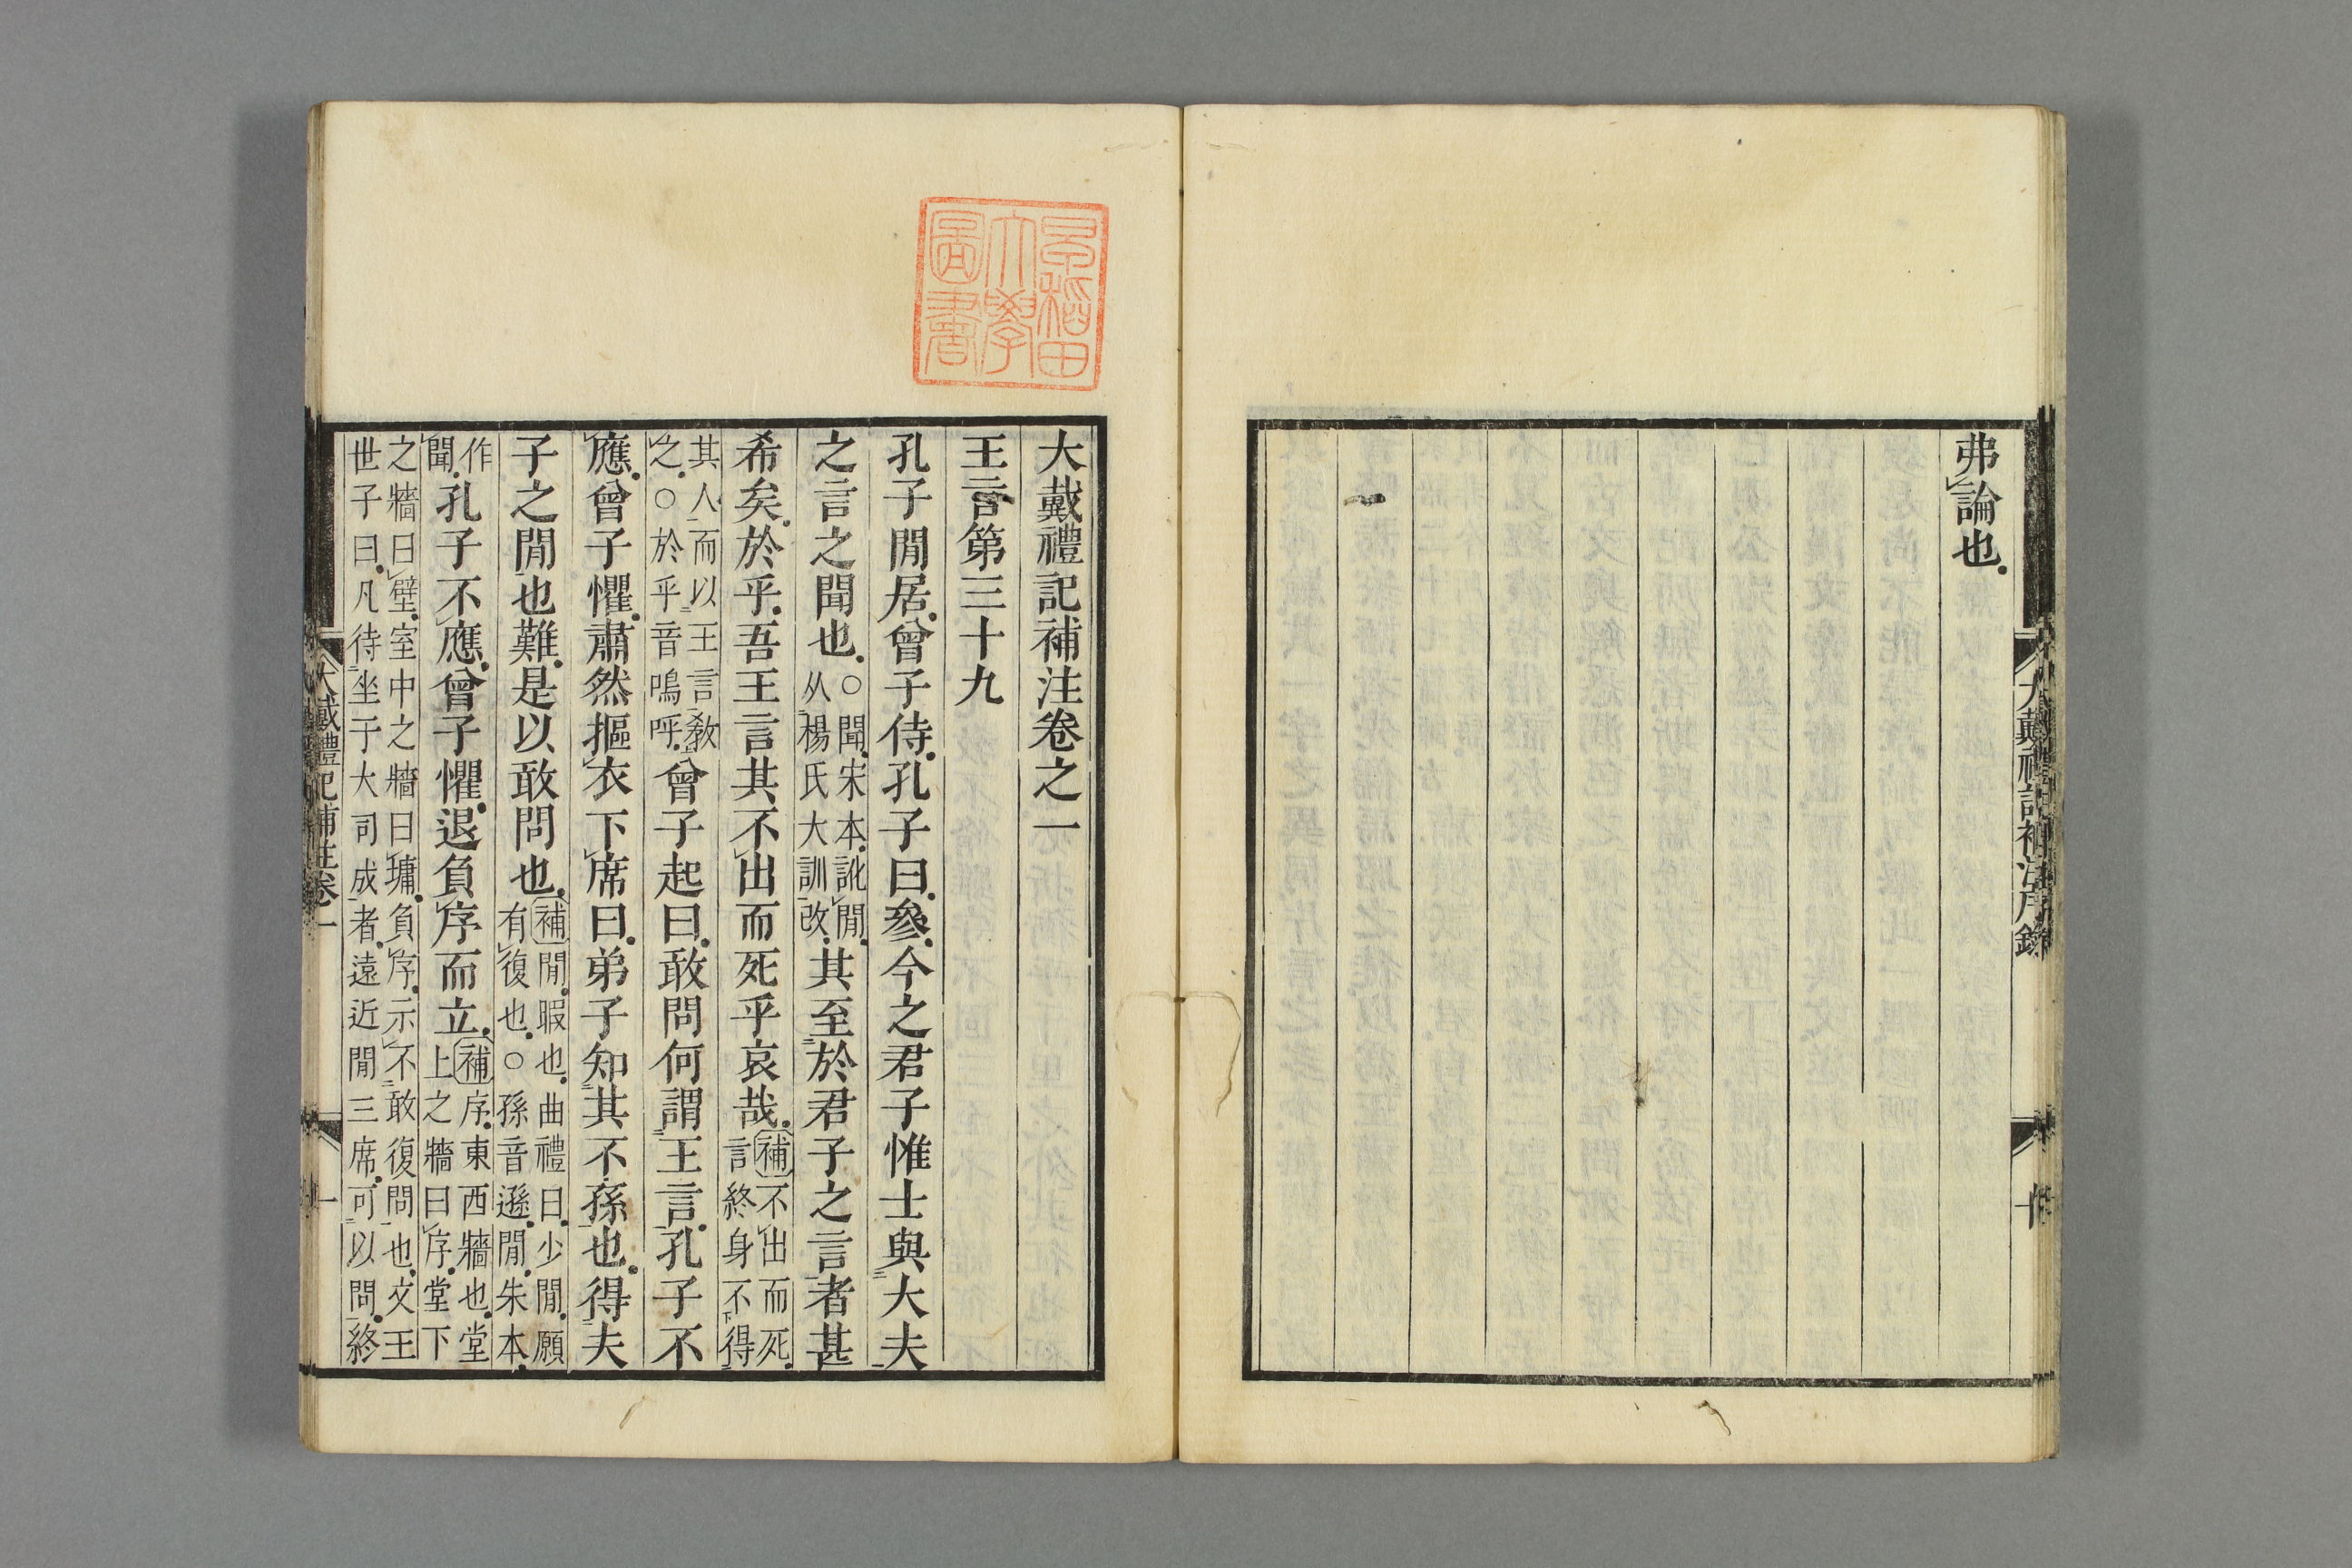 弗論也
大戴禮記補注序錄
十
早稻田
大學
圖書
大戴禮記補注卷之一
王言第三十九
孔子閒居曾子侍孔子曰參今之君子惟士與大夫
之言之聞也○聞宋本訛閒
从楊氏大訓改其至於君子之言者甚
希矣於乎吾王言其不出而死乎哀哉補不出而死
言終身不得
其人而以王言教
之○於乎音嗚呼曾子起曰敢問何謂王言孔子不
應曾子懼肅然摳衣下席曰弟子知其不孫也得夫
子之閒也難是以敢問也補閒暇也曲禮曰少閒願
有復也○孫音遜閒朱本
作
聞孔子不應曾子懼退負序而立補序東西牆也堂
上之牆曰序堂下
之牆曰壁室中之牆曰墉負序示不敢復問也文王
世子曰凡待坐于大司成者遠近閒三席可以問終
大戴禮記補注卷一
一